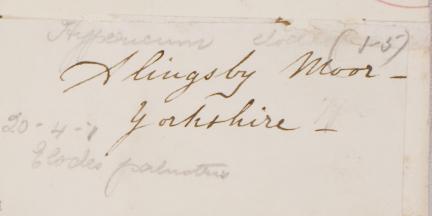 Hypericum elodes (1-5)
Slingsby Moor -
Yorkshire -
20-4-1
Elodes palustris